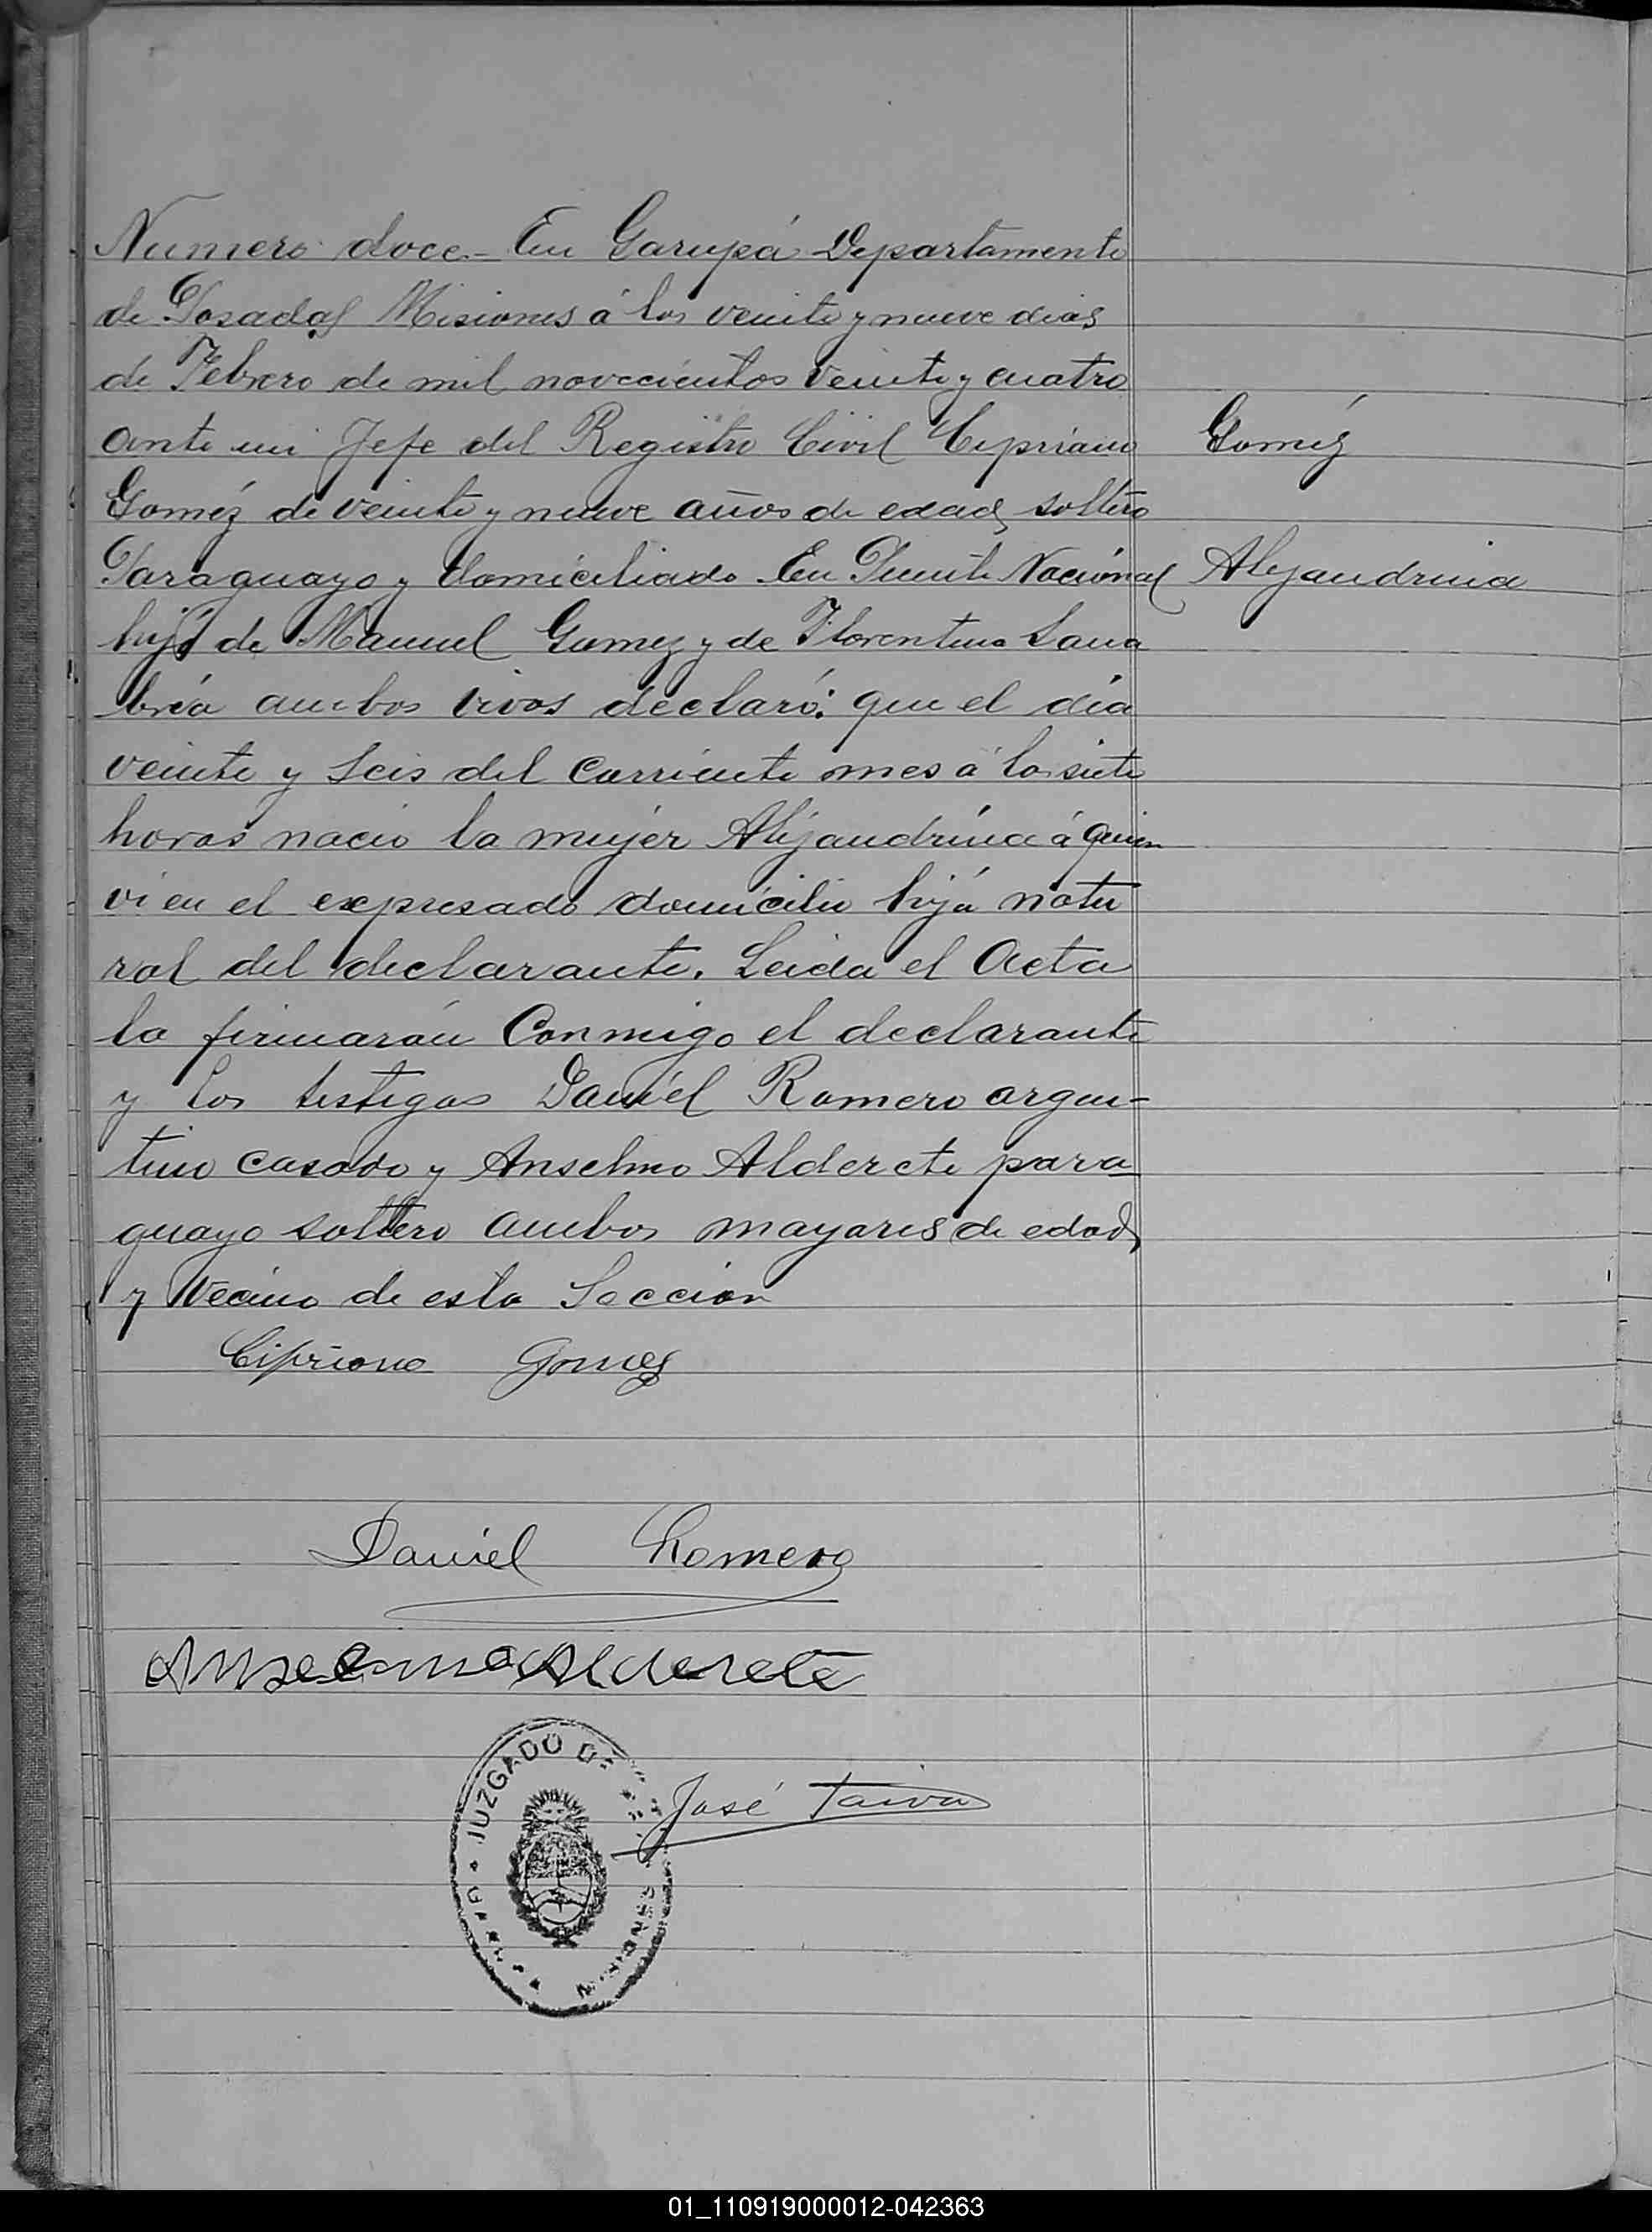 Numero doce.- En Garupá Departamento
de Posadas Misiones á los veinte y nueve dias
de Febrero de mil novecientos veinte y cuatro
ante mi Jefe del Registro Civil Cipriano
Goméz de veinte y nueve años de edad, soltero
Paraguayo y domiciliado En Puente Nacional
hijo de Manuel Gomez y de Florentina Sana
bria ambos vivos declaró: que el día
veinte y Seis del Corriente mes á las siete
horas nacio la mujer Alejandrina á quien
vi en el expresado domicilio hija natu
ral del declarante. Leida el Acta
la firmarán Conmigo el declarante
y los testigos Daniel Romero argen-
tino casado y Anselmo Alderete para
guayo soltero ambos mayores de edad,
y Vecino de esta Seccion
Goméz
Alejandrina
Cipriano Gomez
Daniel Romero
Anselmo Alderete
José
JUZGADO DE
MISIONES
01_110919000012-042363